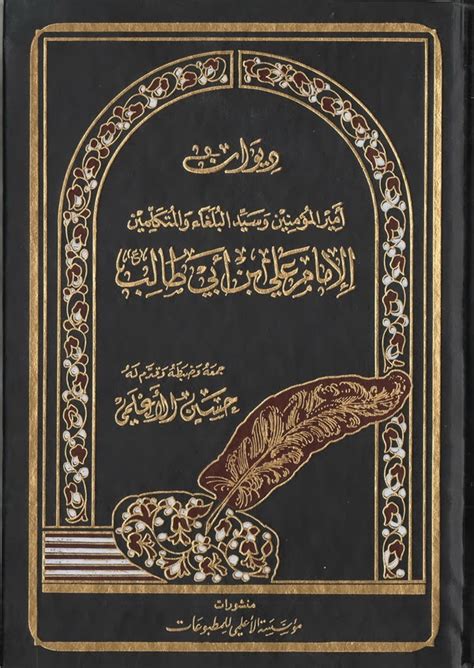 ديوان
أمير المؤمنين وسيد البلغاء والمتكلمين
الإمام علي ابن أبي طالب
جمعه وضبطه وقدم له
حسين الأعلمي
منشورات
مؤسسة الأعلمي للمطبوعات